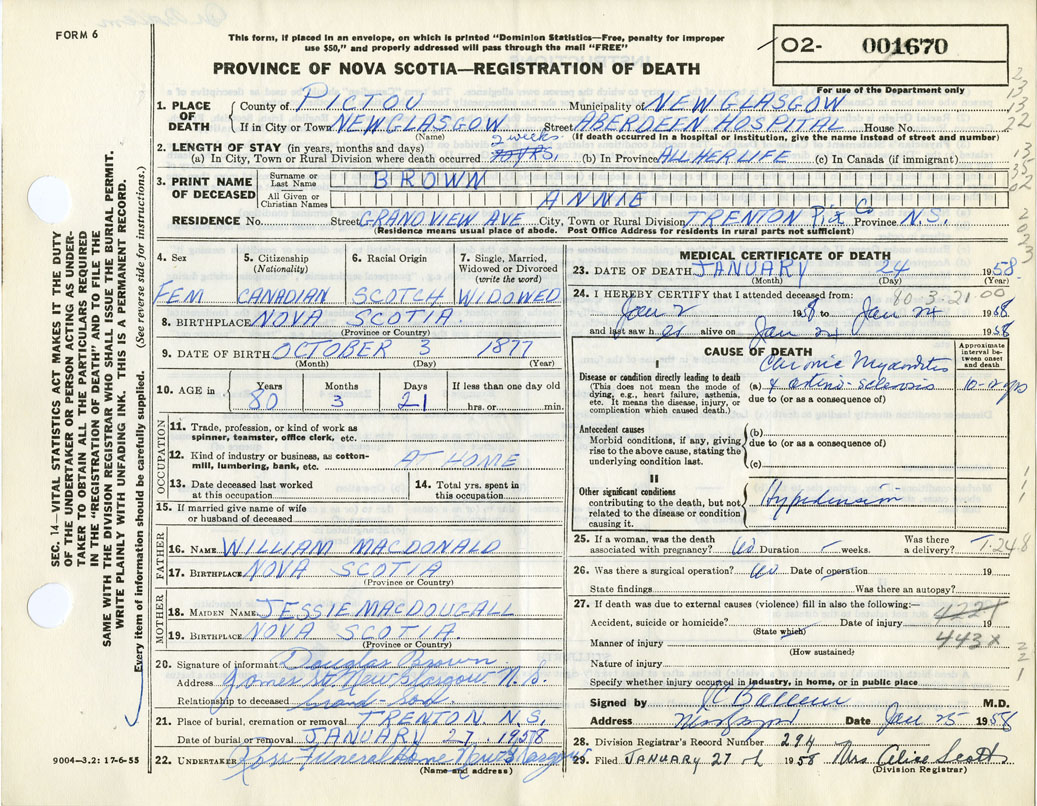 FORM 6
This form, if placed in an envelope, on which is printed "Dominion Statistics—Free, penalty for improper
use $50," and properly addressed will pass through the mail "FREE"
02- 001670
For use of the Department only
PROVINCE OF NOVA SCOTIA—REGISTRATION OF DEATH
1. PLACE OF DEATH
County of PICTOU Municipality of NEW GLASGOW
If in City or Town NEW GLASGOW Street ABERDEEN HOSPITAL House No.
(Name) (If death occurred in a hospital or institution, give the name instead of street and number)
2. LENGTH OF STAY (in years, months and days)
(a) In City, Town or Rural Division where death occurred 2 weeks (b) In Province ALL HER LIFE (c) In Canada (if immigrant)
3. PRINT NAME OF DECEASED
Surname or Last Name BROWN
All Given or Christian Names ANNIE
RESIDENCE No. Street GRANDVIEW AVE City, Town or Rural Division TRENTON Pic Co Province N.S.
(Residence means usual place of abode. Post Office Address for residents in rural parts not sufficient)
4. Sex FEM
5. Citizenship (Nationality) CANADIAN
6. Racial Origin SCOTCH
7. Single, Married, Widowed or Divorced (write the word) WIDOWED
8. BIRTHPLACE NOVA SCOTIA.
(Province or Country)
9. DATE OF BIRTH OCTOBER 3 1877
(Month) (Day) (Year)
10. AGE in Years 80 Months 3 Days 21 If less than one day old hrs. or min.
OCCUPATION
11. Trade, profession, or kind of work as
spinner, teamster, office clerk, etc.
12. Kind of industry or business, as cotton-
mill, lumbering, bank, etc. AT HOME
13. Date deceased last worked
at this occupation
14. Total yrs. spent in
this occupation
15. If married give name of wife
or husband of deceased
FATHER
16. NAME WILLIAM MACDONALD
17. BIRTHPLACE NOVA SCOTIA
(Province or Country)
MOTHER
18. MAIDEN NAME JESSIE MACDOUGALL
19. BIRTHPLACE NOVA SCOTIA.
(Province or Country)
20. Signature of informant Douglas Brown
Address James St. New Glasgow N. S.
Relationship to deceased Grand-Son.
21. Place of burial, cremation or removal TRENTON N.S.
Date of burial or removal JANUARY 27 1958
22. UNDERTAKER Ross Funeral Home New Glasgow
(Name and address)
MEDICAL CERTIFICATE OF DEATH
23. DATE OF DEATH JANUARY 24 1958.
(Month) (Day)
24. I HEREBY CERTIFY that I attended deceased from: 80-3-21-00
Jan 2 1958 to Jan 24 1958
and last saw her alive on Jan 24 1958
CAUSE OF DEATH
Approximate interval between onset and death
I
Disease or condition directly leading to death
(This does not mean the mode of
dying, e.g., heart failure, asthenia,
etc. It means the disease, injury, or
complication which caused death.)
Chronic Myocarditis
(a) & arterio-sclerosis 10-2 yrs
due to (or as a consequence of)
Antecedent causes
Morbid conditions, if any, giving
rise to the above cause, stating the
underlying condition last.
(b)
due to (or as a consequence of)
(c)
II
Other significant conditions
contributing to the death, but not
related to the disease or condition
causing it.
Hypertension
25. If a woman, was the death
associated with pregnancy? No Duration weeks. Was there
a delivery? 1.24.8
26. Was there a surgical operation? No Date of operation 19
State findings Was there an autopsy?
27. If death was due to external causes (violence) fill in also the following:—
Accident, suicide or homicide? Date of injury 19
(State which)
4221
Manner of injury 443x
(How sustained)
Nature of injury
Specify whether injury occurred in industry, in home, or in public place
Signed by M.D.
Address Date Jan 25 1958
28. Division Registrar's Record Number 294
29. Filed JANUARY 27th 1958 Mrs Alice Scott
(Division Registrar)
9004—3.2: 17-6-55
SEC. 14—VITAL STATISTICS ACT MAKES IT THE DUTY
OF THE UNDERTAKER OR PERSON ACTING AS UNDER-
TAKER TO OBTAIN ALL THE PARTICULARS REQUIRED
IN THE "REGISTRATION OF DEATH" AND TO FILE THE
SAME WITH THE DIVISION REGISTRAR WHO SHALL ISSUE THE BURIAL PERMIT.
WRITE PLAINLY WITH UNFADING INK. THIS IS A PERMANENT RECORD.
Every item of information should be carefully supplied. (See reverse side for instructions.)